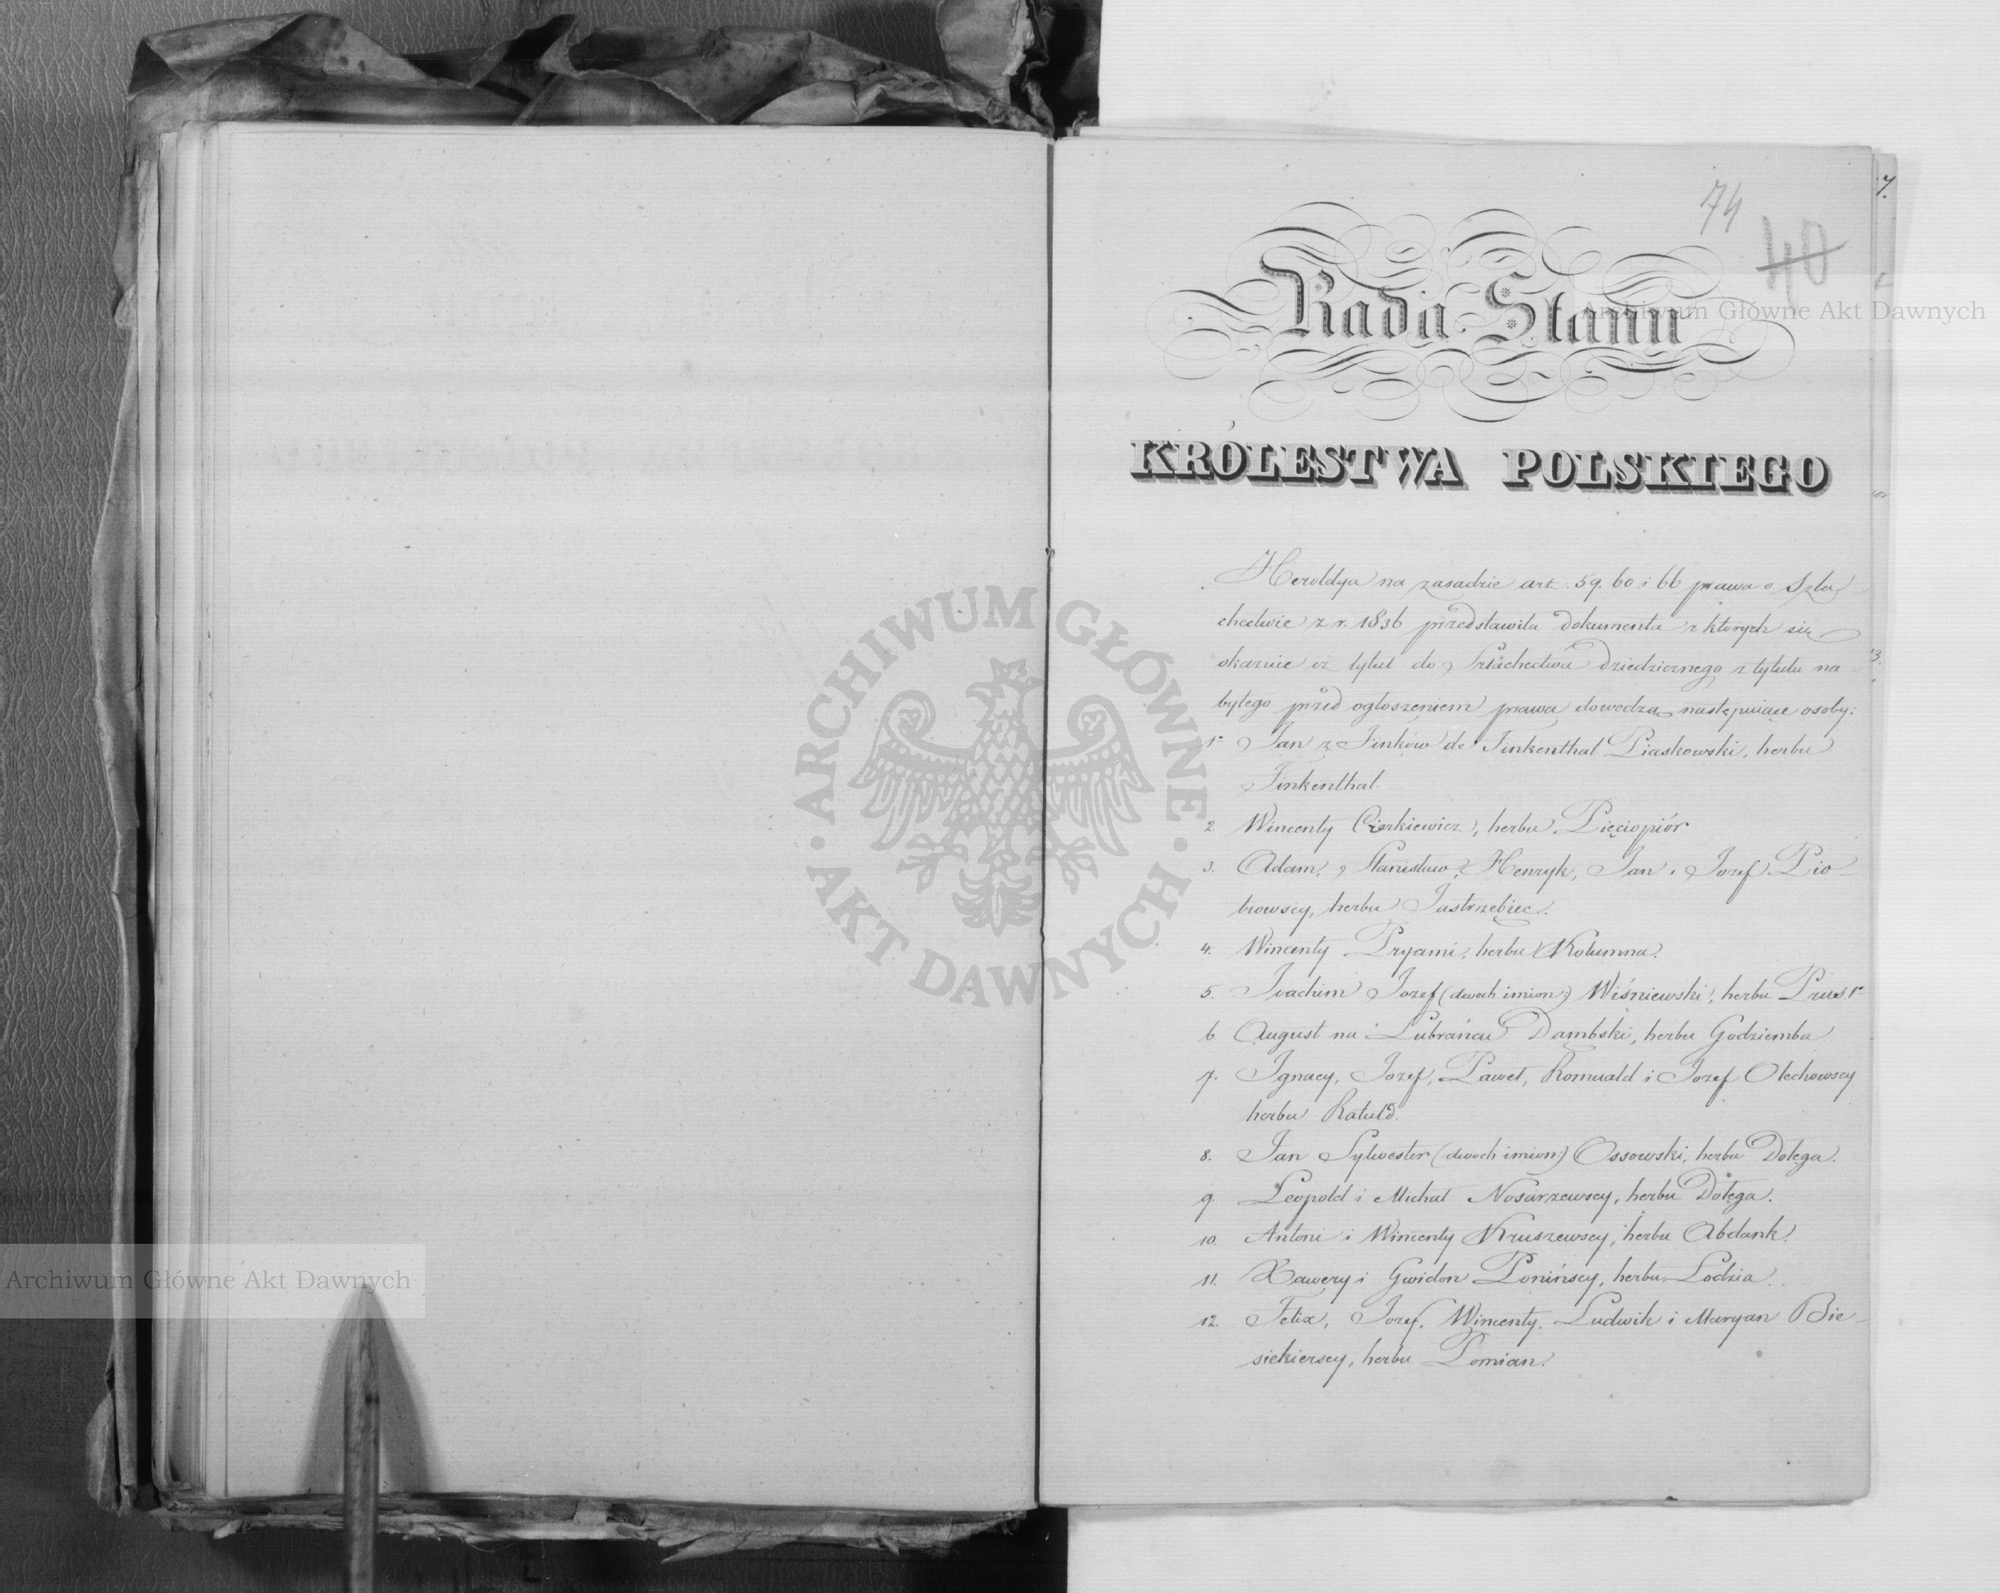 74
40
Rada Stanu
KRÓLESTWA POLSKIEGO
Heroldya na zasadzie art. 59. 60 i 66 prawa o Szla-
chectwie z r. 1836 przedstawiła dokumenta z ktorych się
okazuie iż tytuł do Szlachectwa dziedzicznego z tytułu na-
bytego przed ogłoszeniem prawa dowodzą następuiące osoby:
1º Jan z Finków de Finkenthal Piaskowski, herbu
Finkenthal.
2. Wincenty Cierkiewicz, herbu Pięciopiór
3. Adam, Stanisław, Henryk, Jan i Jozef Pio-
trowscy, herbu Jastrzębiec.
4. Wincenty Pryami, herbu Kolumna.
5. Joachim Jozef (dwoch imion) Wiśniewski, herbu Prus 1º
6. August na Lubrańcu Dąmbski, herbu Godziemba
7. Ignacy, Jozef, Paweł, Romuald i Jozef Olechowscy
herbu Ratuld.
8. Jan Sylwester (dwoch imion) Ossowski, herbu Dołęga.
9. Leopold i Michał Nosarzewscy, herbu Dołęga.
10. Antoni i Wincenty Kruszewscy, herbu Abdank.
11. Xawery i Gwidon Ponińscy, herbu Lodzia.
12. Felix, Jozef, Wincenty, Ludwik i Maryan Bie-
siekierscy, herbu Pomian.
ARCHIWUM GŁÓWNE AKT DAWNYCH
Archiwum Główne Akt Dawnych
Archiwum Główne Akt Dawnych